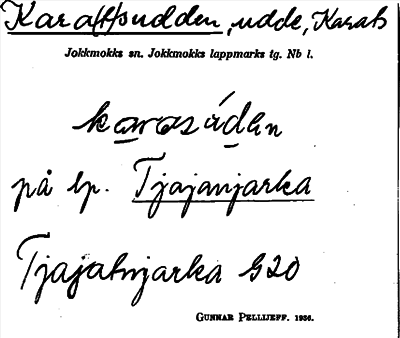 Kara(t)sudden, udde, Karats
Jokkmokks sn. Jokkmokks lappmarks tg. Nb l.
karasúdən
på lp. Tjajanjarka
Tjajatnjarka G20
GUNNAR PELLIJEFF. 1936.